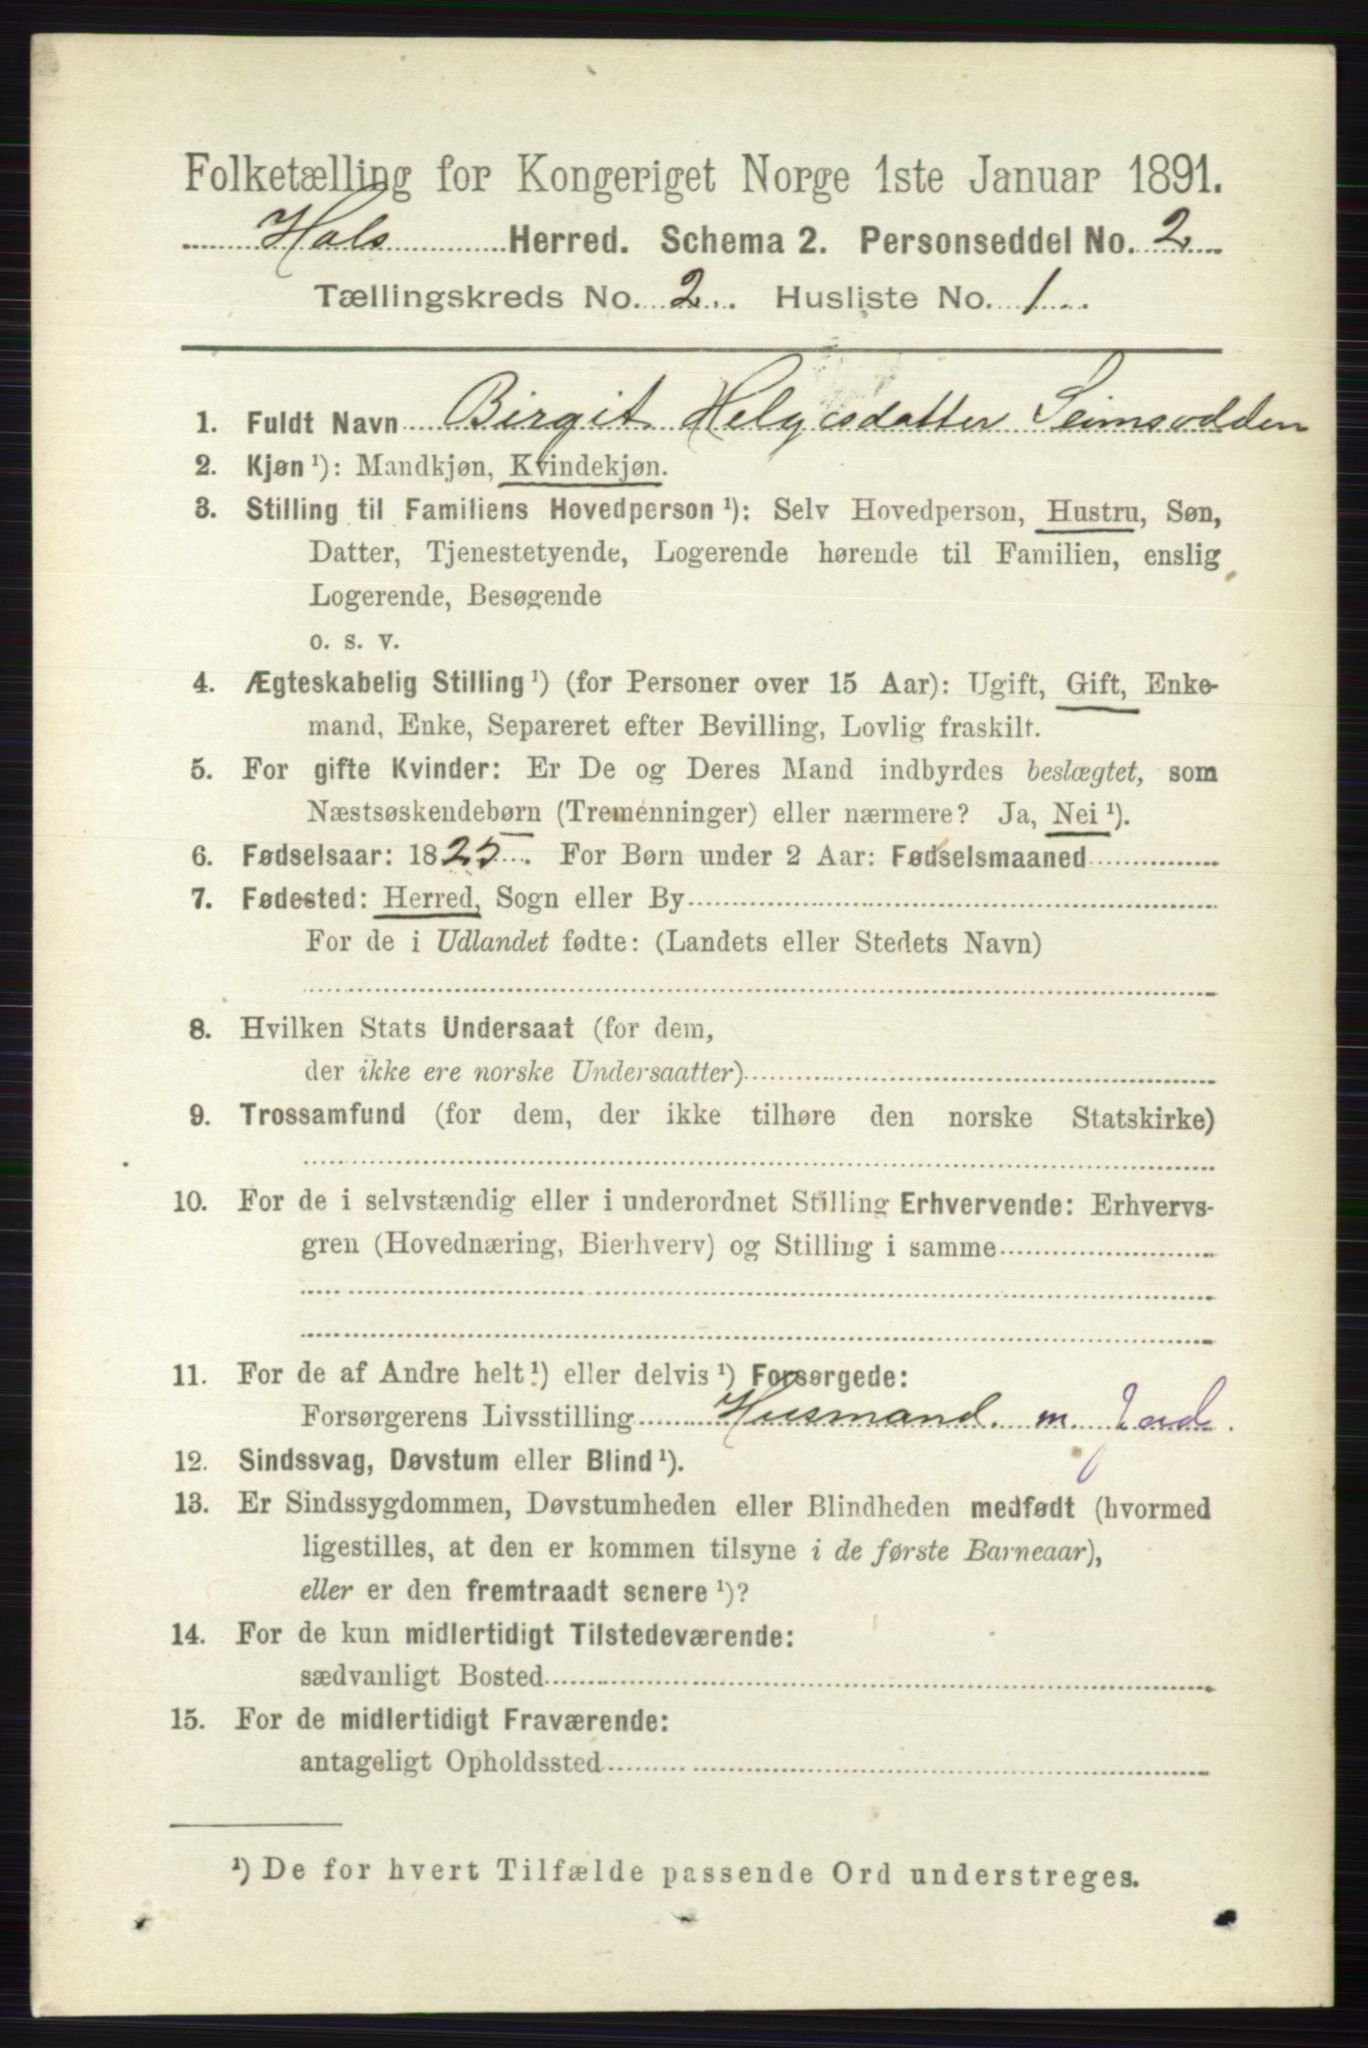 Folketælling for Kongeriget Norge 1ste Januar 1891.
Hals Herred. Schema 2. Personseddel No. 2
Tællingskreds No. 2. Husliste No. 1
1. Fuldt Navn Birgit Helgesdatter Seimsodden
2. Kjøn ¹): Mandkjøn, Kvindekjøn.
3. Stilling til Familiens Hovedperson ¹): Selv Hovedperson, Hustru, Søn,
Datter, Tjenestetyende, Logerende hørende til Familien, enslig
Logerende, Besøgende
o. s. v.
4. Ægteskabelig Stilling ¹) (for Personer over 15 Aar): Ugift, Gift, Enke-
mand, Enke, Separeret efter Bevilling, Lovlig fraskilt.
5. For gifte Kvinder: Er De og Deres Mand indbyrdes beslægtet, som
Næstsøskendebørn (Tremenninger) eller nærmere? Ja, Nei ¹).
6. Fødselsaar: 1825. For Børn under 2 Aar: Fødselsmaaned
7. Fødested: Herred, Sogn eller By
For de i Udlandet fødte: (Landets eller Stedets Navn)
8. Hvilken Stats Undersaat (for dem,
der ikke ere norske Undersaatter)
9. Trossamfund (for dem, der ikke tilhøre den norske Statskirke)
10. For de i selvstændig eller i underordnet Stilling Erhvervende: Erhvervs-
gren (Hovednæring, Bierhverv) og Stilling i samme
11. For de af Andre helt ¹) eller delvis ¹) Forsørgede:
Forsørgerens Livsstilling Husmand. m. Jord.
12. Sindssvag, Døvstum eller Blind ¹).
13. Er Sindssygdommen, Døvstumheden eller Blindheden medfødt (hvormed
ligestilles, at den er kommen tilsyne i de første Barneaar),
eller er den fremtraadt senere ¹)?
14. For de kun midlertidigt Tilstedeværende:
sædvanligt Bosted
15. For de midlertidigt Fraværende:
antageligt Opholdssted
¹) De for hvert Tilfælde passende Ord understreges.